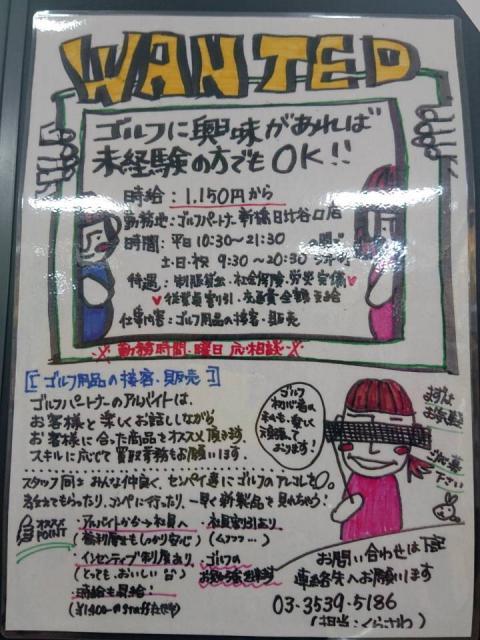 WANTED
ゴルフに興味があれば
未経験の方でもOK!!
時給:1,150円から
勤務地:ゴルフパートナー新橋日比谷口店
時間:平日10:30~21:30
土・日・祝 9:30~20:30
待遇:制服貸出・社会保険・労災完備
♥従業員割引・交通費全額支給
仕事内容:ゴルフ用品の接客・販売
※勤務時間・曜日 応相談※
[ゴルフ用品の接客・販売]
ゴルフパートナーのアルバイトは、
お客様と楽しくお話ししながら
お客様に合った商品をオススメ頂きます。
スキルに応じて買取業務もお願いします。
ゴルフ
初心者の
私も、楽しく
頑張って
おります!
まずは
お気軽に
ご応募
下さい
スタッフ同士みんな仲良く、センパイ達にゴルフのアレコレを
教えてもらったり、コンペに行ったり、一早く新製品を見れちゃう!
オススメ
POINT
アルバイトから→社員へ
(福利厚生もしっかり安心)
・社員割引あり
(ムフフフ…)
インセンティブ制度あり
(とっても、おいしい)
・ゴルフの
・時給も昇給!
お問い合わせは下記
連絡先へお願いします
03-3539-5186
(担当:くらさわ)